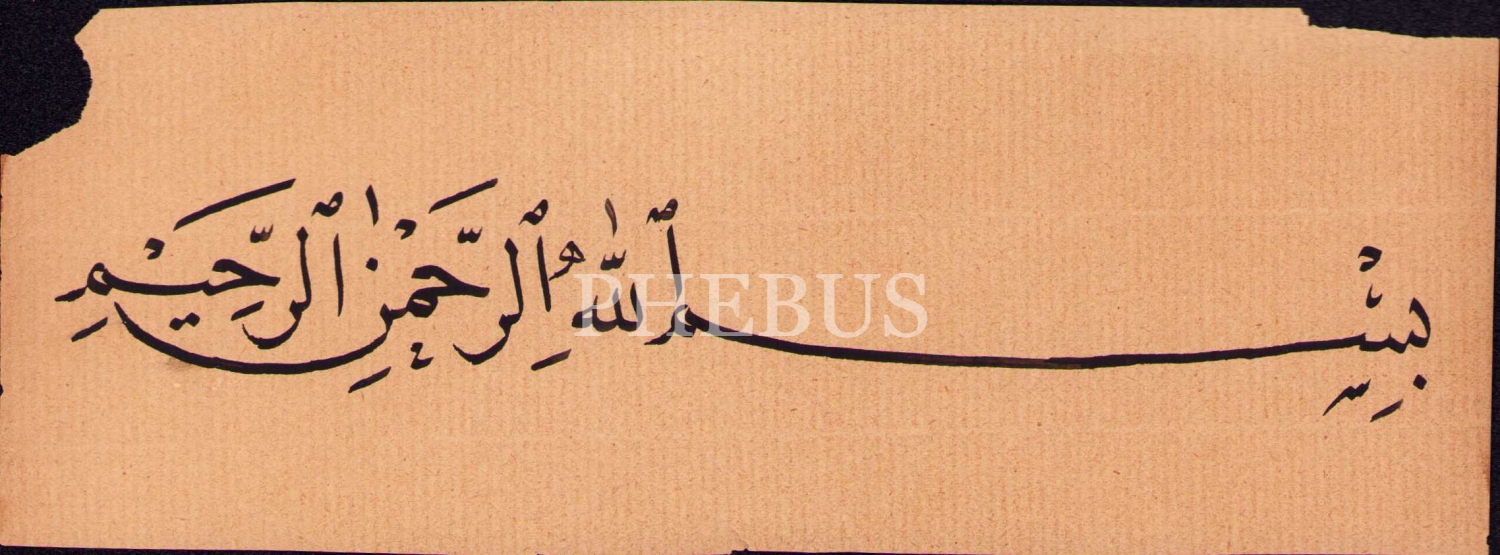 بِسْمِ ٱللّٰهِ ٱلرَّحْمٰنِ ٱلرَّحِيْمِ
PHEBUS